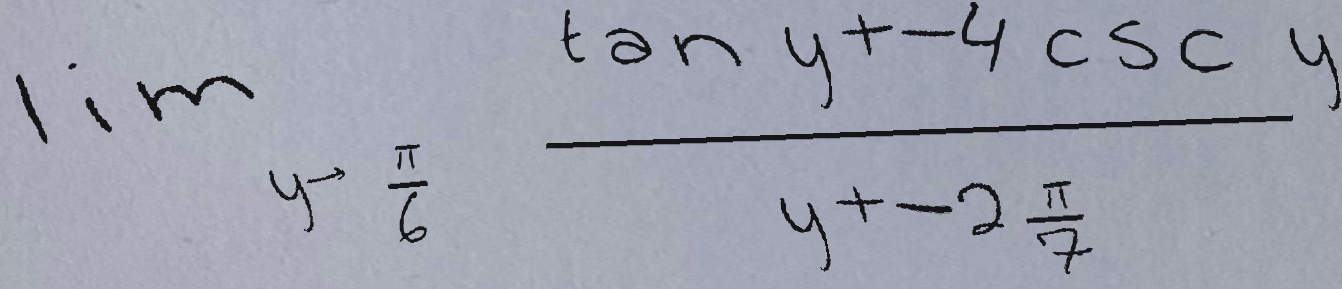 \lim_{y \to \frac{\pi}{6}} \frac{\tan y + -4 \csc y}{y + -2 \frac{\pi}{7}}